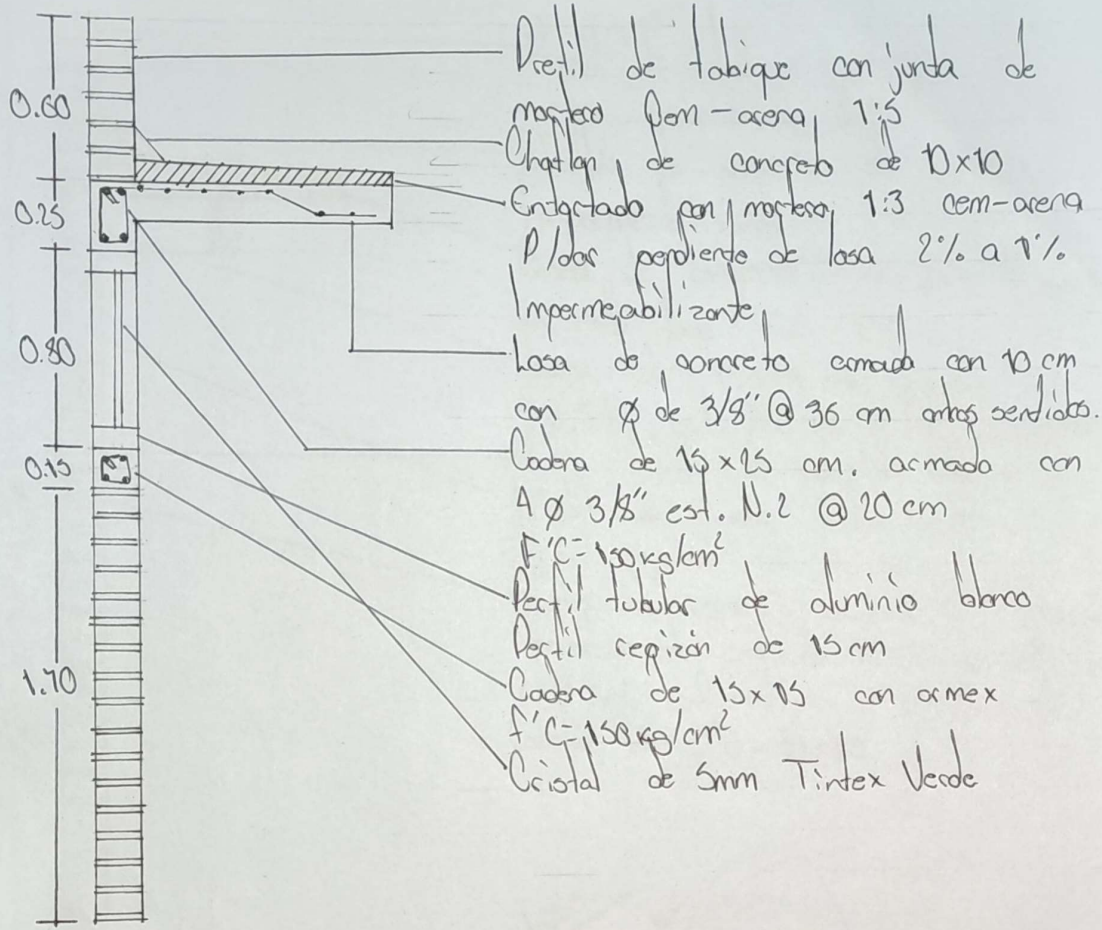 0.60
0.25
0.80
0.15
1.70
Pretil de tabique con junta de
mortero Cem-arena 1:5
Chaflan de concreto de 10x10
Entortado con mortero 1:3 cem-arena
P/dar pendiente de losa 2% a 1%
Impermeabilizante
Losa de concreto armada con 10 cm
con Ø de 3/8" @ 36 cm ambos sentidos.
Cadena de 15x25 cm. armada con
4 Ø 3/8" est. N.2 @ 20 cm
F'C=150 kg/cm²
Perfil tubular de aluminio blanco
Perfil repizón de 15cm
Cadena de 15x15 con armex
f'C=150 kg/cm²
Cristal de 5mm Tintex Verde